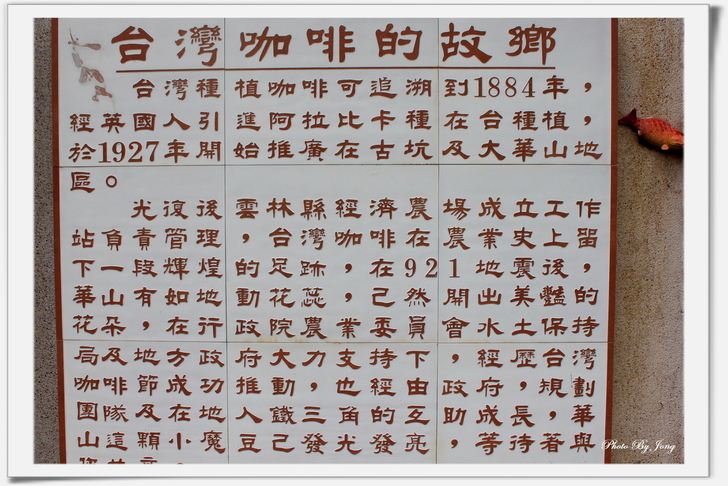 台灣咖啡的故鄉
台灣種植咖啡可追溯到1884年，
經英國人引進阿拉比卡種在台種植，
於1927年開始推廣在古坑及大華山地
區。
光復後雲林縣經濟農場成立工作
站負責管理，台灣咖啡在農業史上留
下一段輝煌的足跡，在921地震後，
華山有如地動花蕊，己然開出美豔的
花朵，在行政院農業委員會水土保持
局及地方政府大力支持下，經歷台灣
咖啡節成功推動，也經由政府，規劃
團隊及在地人鐵三角的互助成長，華
山這顆小魔豆己發光發亮，等待著與
Photo By Jong